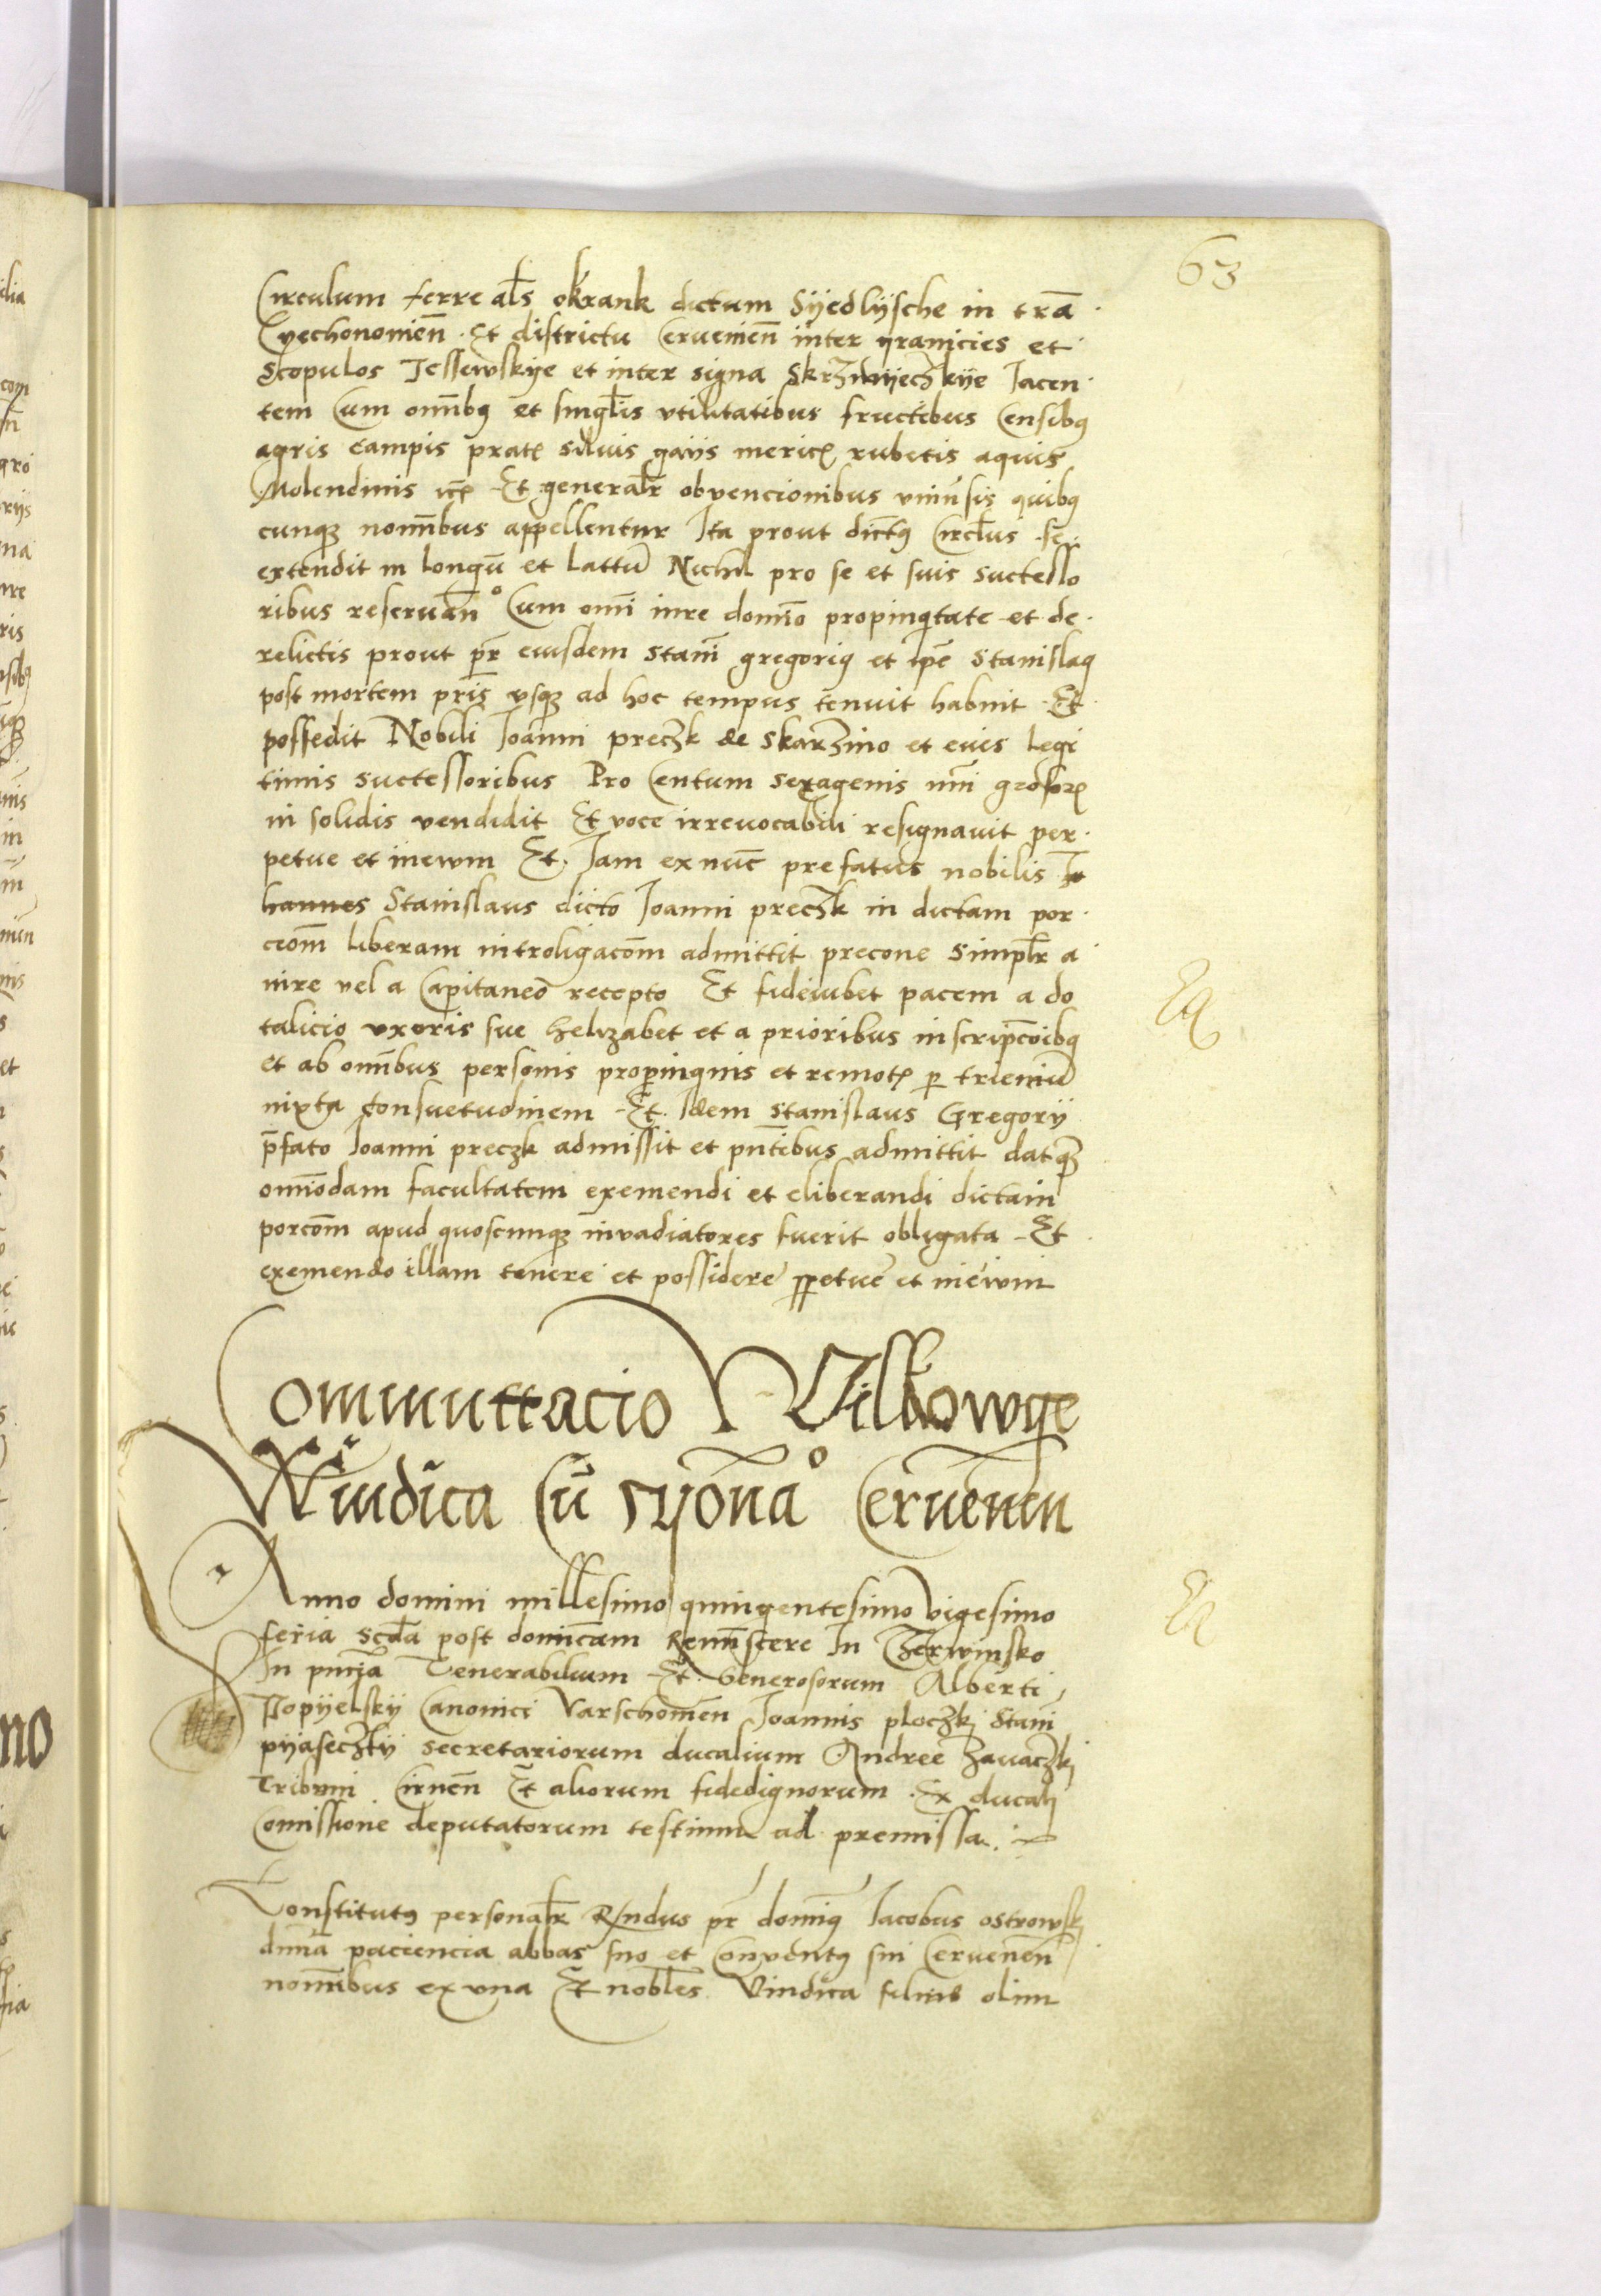 63
Circulum terre als̄ okrank dictum Syedlysche in trā
Cyechonomieñ Et districtu Cerveneñ inter granicies et
Scopulos Jessewskye et inter signa Skrzinyeczkye Jacen
tem Cum omībꝰ et singłis vtilitatibus fructibus Censibꝰ
agris campis pratꝭ silvis gaijs mericꝭ rubetis aquis
Molendinis etꝭ Et generalr̄ obvencionibus vniu͂sis quibꝰ
cunqꝫ nomībus appellentur Ita prout dictꝰ Circłus se
extendit in longū et lattū Nichil pro se et suis successo
ribus reseruan̄º Cum omī iure domīo propinqitate et de
relictis prout pr̄ eiusdem stanī gregoriꝰ et ip̄e Stanislaꝰ
post mortem pris̄ vsqꝫ ad hoc tempus tenuit habuit Et
possedit Nobili Joanni preczk de Skarzino et eius legi
timis successoribus Pro Centum sexagenis nmī grosorꝭ
in solidis vendidit Et voce irrevocabili resignavit per
petue et inewm Et Jam ex nūc prefatus nobilis Jo
hannes Stanislaus dicto Joanni preczk in dictam por
ciom̄ liberam introligacom̄ admittit precone simplr̄ a
iure vel a Capitaneo recepto Et fideiubet pacem a do
talicio vxoris sue helizabet et a prioribus inscripc̄oibꝰ
et ab omībus personis propinquis et remotꝭ ꝑ trieniū
iuxta Consuetudinem Et Idem Stanislaus Gregorij
p̄fato Joanni preczk admissit et pn̄tibus admittit datqꝫ
omīodam facultatem exemendi et eliberandi dictam
porcom̄ apud quoscunqꝫ invadiatores fuerit obligata Et
exemendo illam tenere et possidere ꝑpetue et inewm
Commuttacio Vilkowye
Windica Cū Cervenen
Anno domini millesimo quingentesimo vigesimo
feria scd̄a post domīcam Remīscere In Czerwinsko
In pn̄cia Venerabilium Et Generosorum Alberti
Popyelsky Canonici Varschoven̄ Joannis ploczkj Stanī
pyaseczky secretariorum ducalium Andree Zavaczkj
Tribuni Cirnen̄ Et aliorum fidedignorum Ex ducali
Comissione deputatorum testium ad premissa
Constitutꝰ personalr̄ Rn̄dus pr̄ domīꝰ Jacobus ostrowskj
diuīa paciencia abbas suo et Conventꝰ sui Cervenen̄
nomībus ex vna Et nobles Vindica filius olim